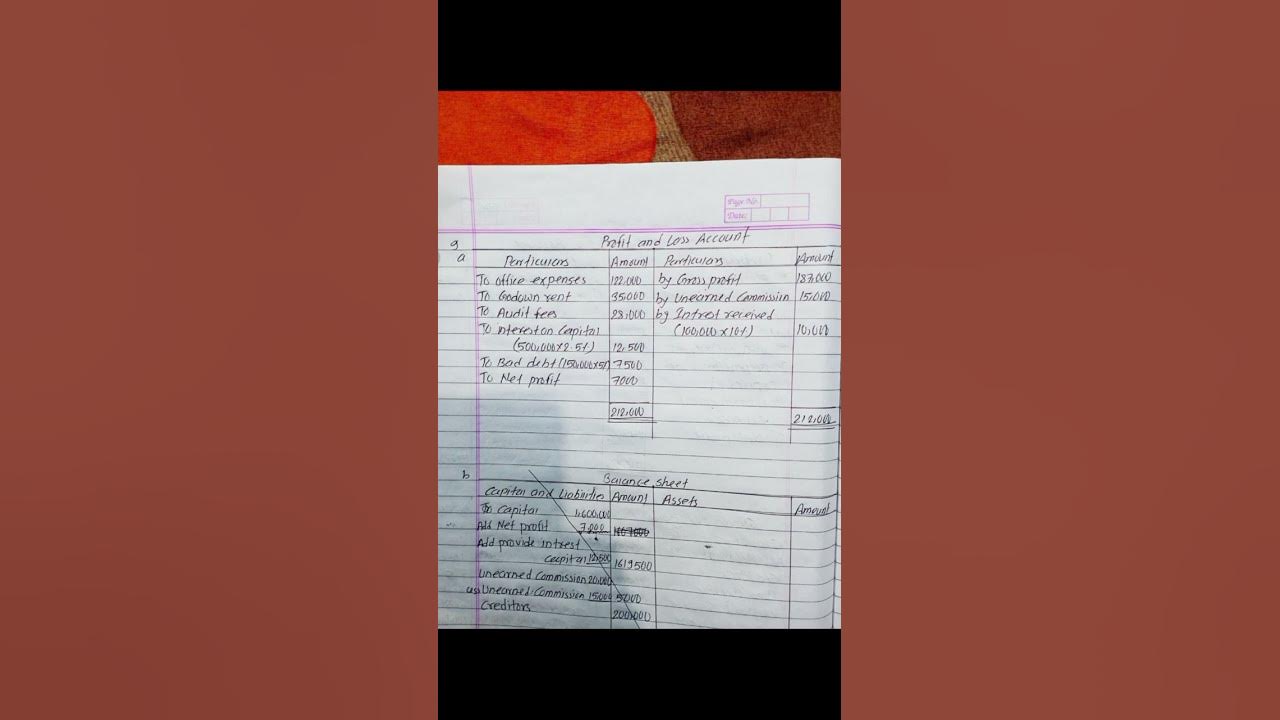 Page No.
Date:
Profit and Loss Account
9
a Particulars Amount Particulars Amount
To office expenses 122,000 by Gross profit 187,000
To Godown rent 35,000 by Unearned Commission 15,000
To Audit fees 28,000 by Intrest received
To interest on Capital (100,000 x 10%) 10,000
(500,000 x 2.5%) 12,500
To Bad debt (150,000x5%) 7500
To Net profit 7000
212,000 212,000
b Balance sheet
Capital and Liabilities Amount Assets Amount
To Capital 1,600,000
Add Net profit 7,000
Add provide intrest
capital 12,500 1619500
Unearned Commission 20,000
Unearned Commission 15,000 5000
Creditors 200,000